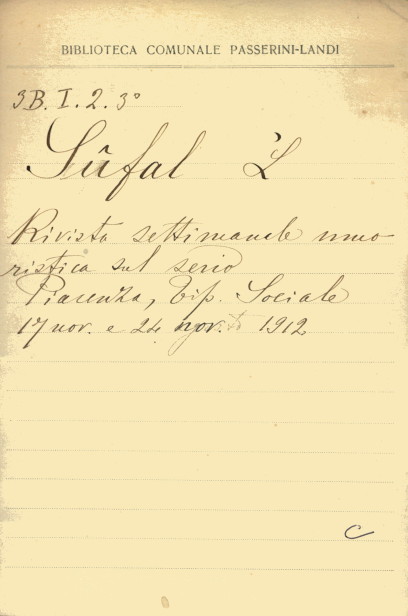 BIBLIOTECA COMUNALE PASSERINI-LANDI
3B. I. 2. 3°
Sûfal 'L
Rivista settimanale umo
ristica sul serio
Piacenza, Tip. Sociale
17 nov. e 24 nov. 1912
C